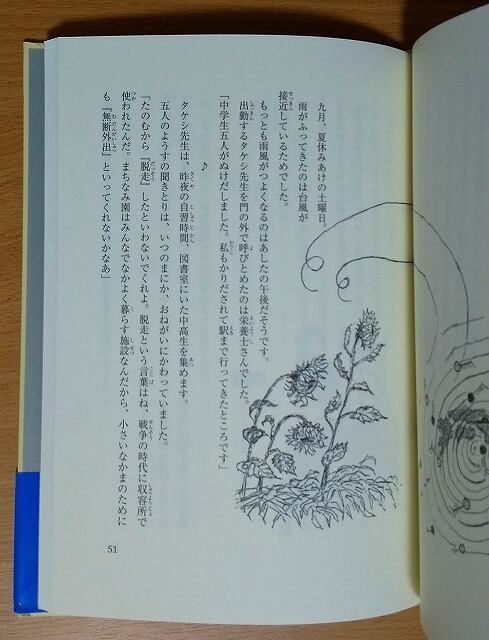 九月、夏休みあけの土曜日。
雨がふってきたのは台風が
接近しているためでした。
もっとも雨風がつよくなるのはあしたの午後だそうです。
出勤するタケシ先生を門の外で呼びとめたのは栄養士さんでした。
「中学生五人がぬけだしました。私もかりだされて駅まで行ってきたところです」
♪
タケシ先生は、昨夜の自習時間、図書室にいた中高生を集めます。
五人のようすの聞きとりは、いつのまにか、おねがいにかわっていました。
「たのむから『脱走』したといわないでくれよ。脱走という言葉はね、戦争の時代に収容所で
使われたんだ。まちなみ園はみんなでなかよく暮らす施設なんだから、小さいなかまのために
も『無断外出』といってくれないかなあ」
51